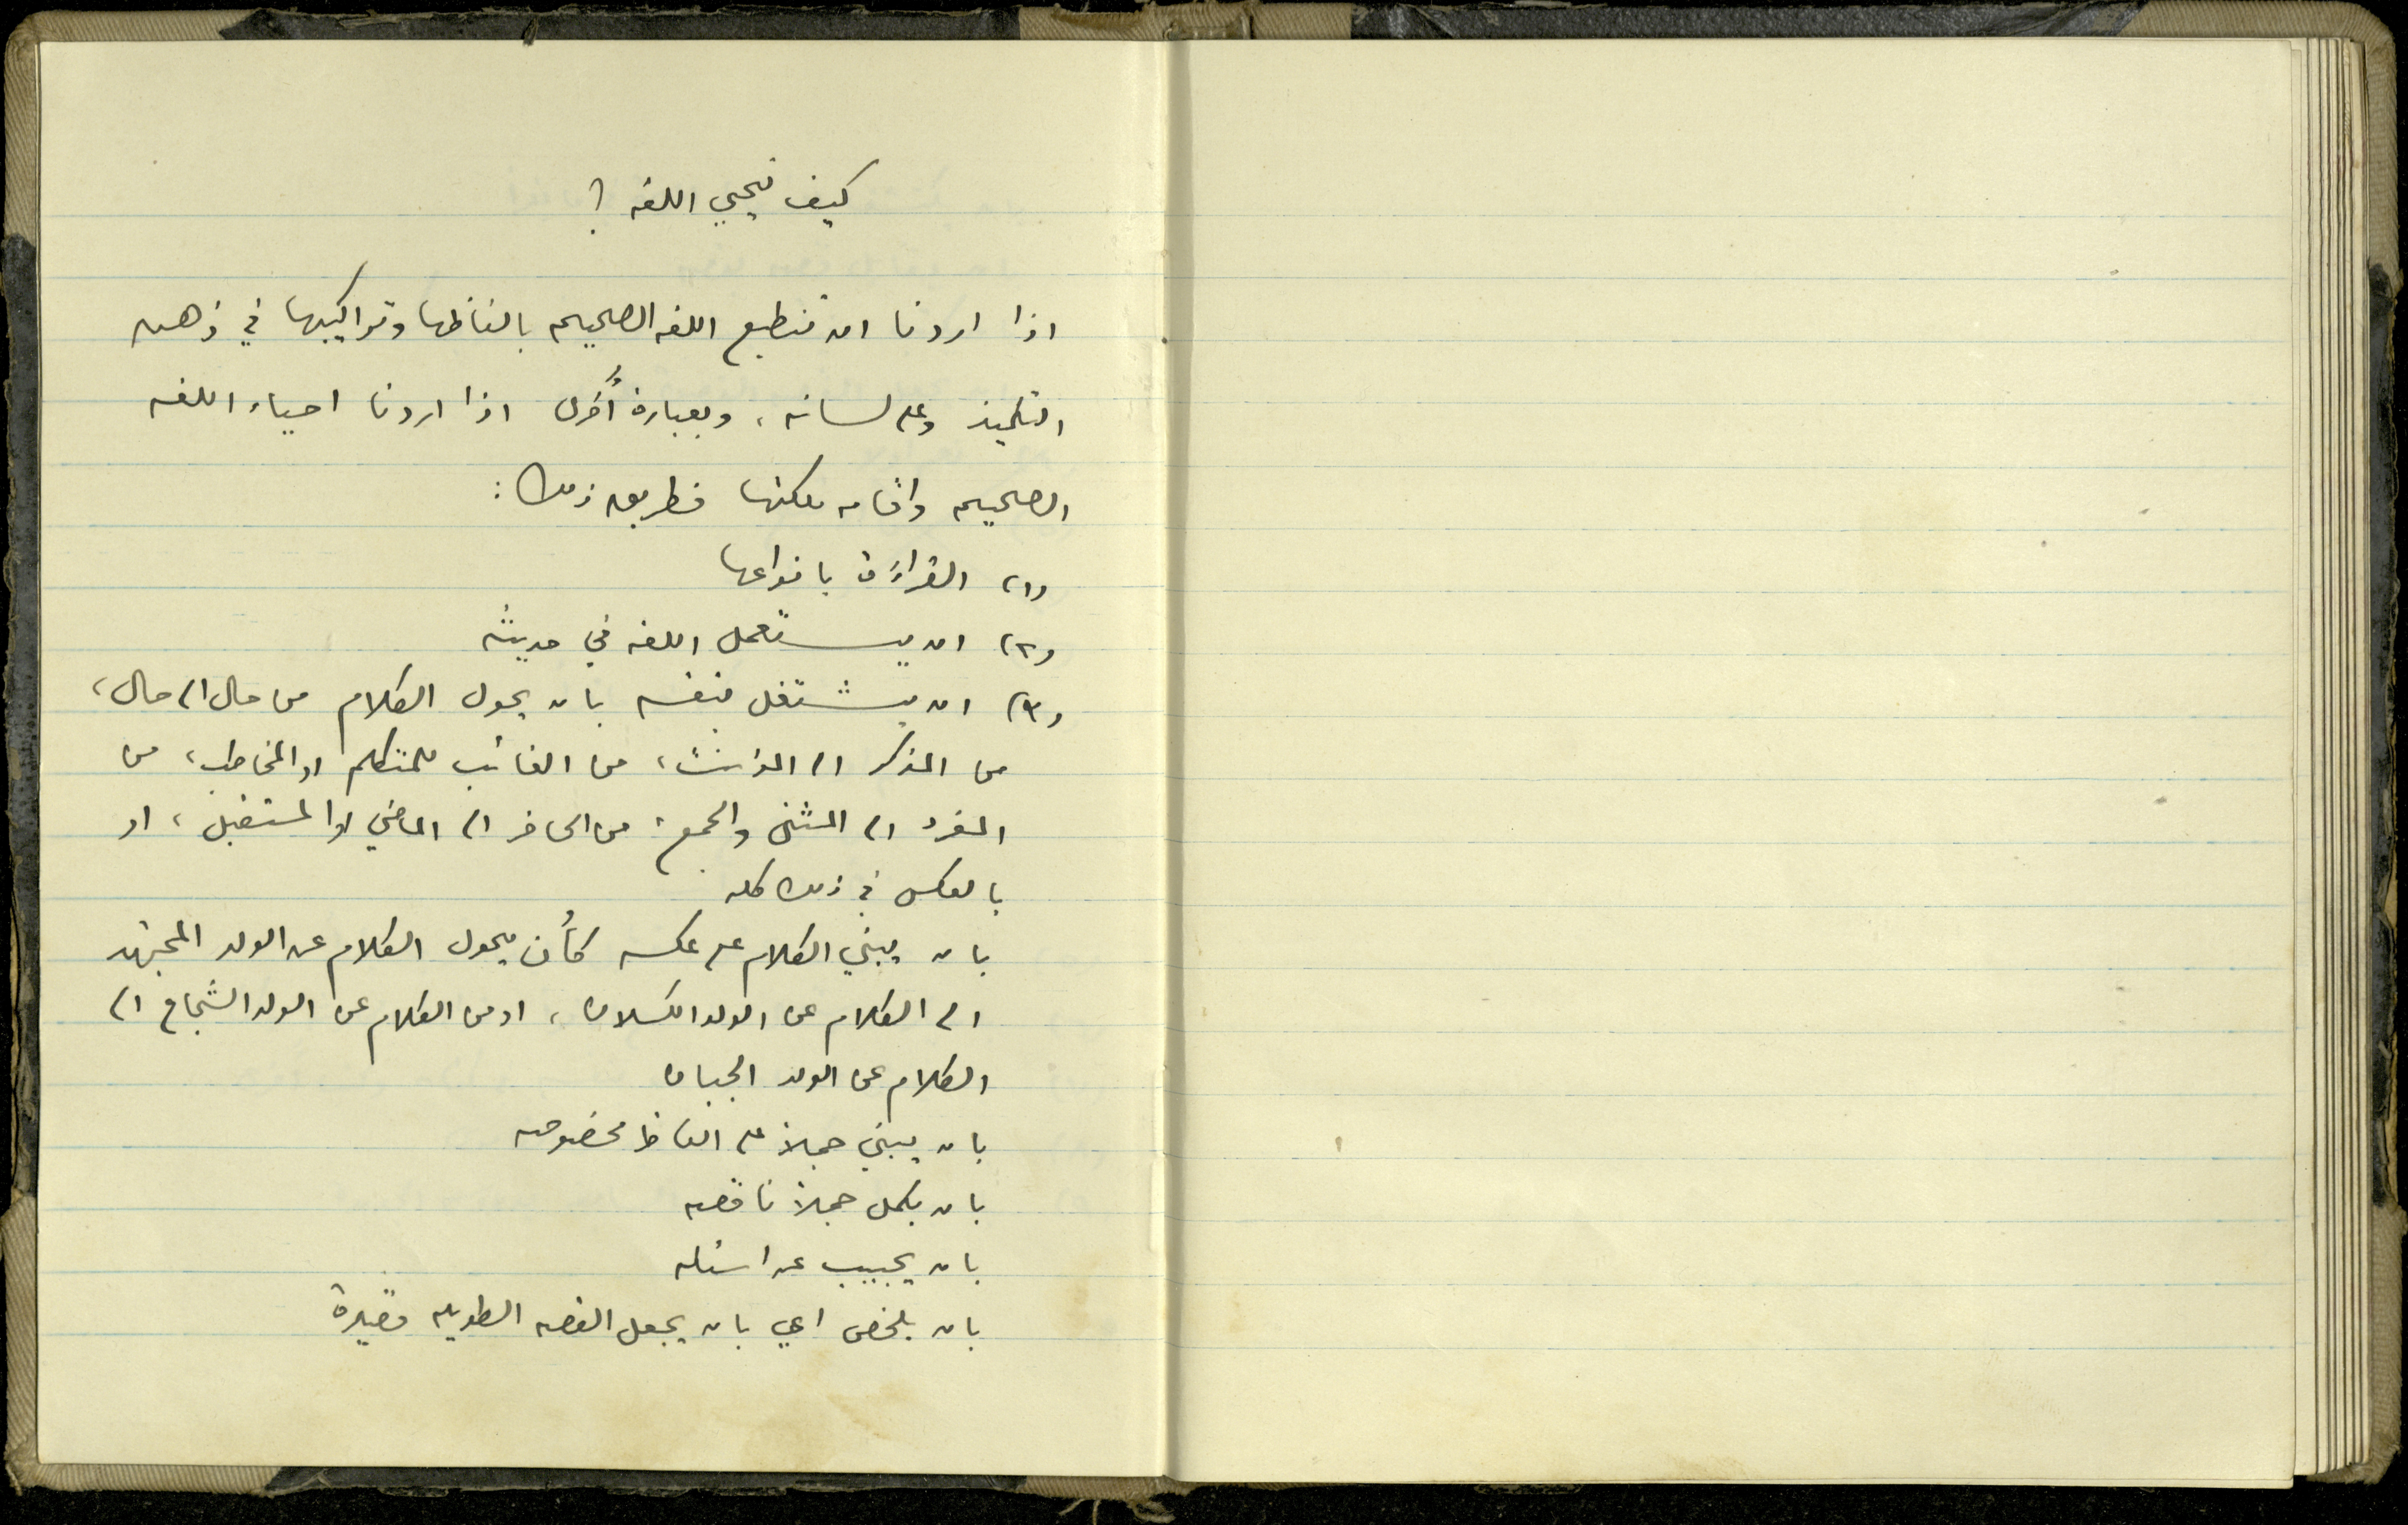 كيف نحيي اللغه ؟
اذا اردنا ان تنطبع اللغه الصحيحه بالفاظها وتراكيبها في ذهن
التلميذ وعلى لسانه ، وبعبارة أُخرى اذا اردنا احياء اللغه
الصحيحه واقامه ملكتها فطريق ذلك :
(١) القراءَة بانواعها
(٢) ان يستعمل اللغه في حديثه
(٣) ان يشتغل بنفسه بان يحول الكلام من حال الى حال ،
من المذكر الى المؤنث ، من الغائب للمتكلم او المخاطب ، من
المفرد الى المثنى والجمع ، من الحاضر الى الماضي او المستقبل ، او
بالعكس في ذلك كله
بان يبني الكلام على عكسه كأن يحول الكلام عن الولد المجتهد
الى الكلام عن الولد الكسلان ، او من الكلام عن الولد الشجاع الى
الكلام عن الولد الجبان
بان يبني جملاً على الفاظ مخصوصه
بان يكمل جملاً ناقصه
بان يجيب عن اسئله
بان يلخص اي بان يجعل القصه الطويله قصيرة